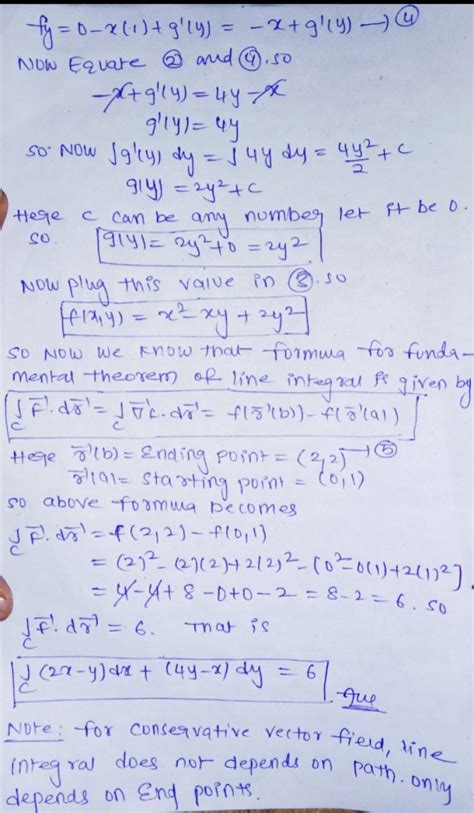 fy = 0 - x(1) + g'(y) = -x + g'(y) → ④
NOW Equate ② and ④. so
-x + g'(y) = 4y - x
g'(y) = 4y
so NOW ∫g'(y) dy = ∫4y dy = 4y²/2 + c
g(y) = 2y² + c
Here c can be any number let it be 0.
so. g(y) = 2y² + 0 = 2y²
NOW plug this value in ③. so
f(x,y) = x² - xy + 2y²
so NOW we know that formula for funda-
mental theorem of line integral is given by
∫_C F⃗. dr⃗ = ∫_C ∇f. dr⃗ = f(r⃗(b)) - f(r⃗(a))
→ ⑤
Here r⃗(b) = Ending point = (2,2)
r⃗(a) = starting point = (0,1)
so above formula becomes
∫_C F⃗. dr⃗ = f(2,2) - f(0,1)
= (2)² - (2)(2) + 2(2)² - [0² - 0(1) + 2(1)²]
= 4 - 4 + 8 - 0 + 0 - 2 = 8 - 2 = 6. so
∫_C F⃗. dr⃗ = 6. That is
∫_C (2x-y)dx + (4y-x)dy = 6. Ans
Note: for conservative vector field, line
integral does not depends on path. only
depends on End points.